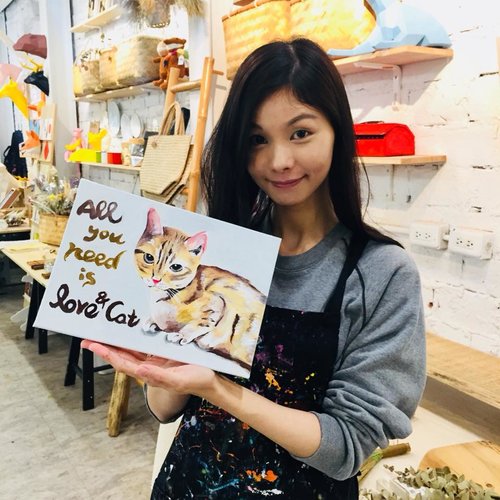 All
you
need
is
love & Cat